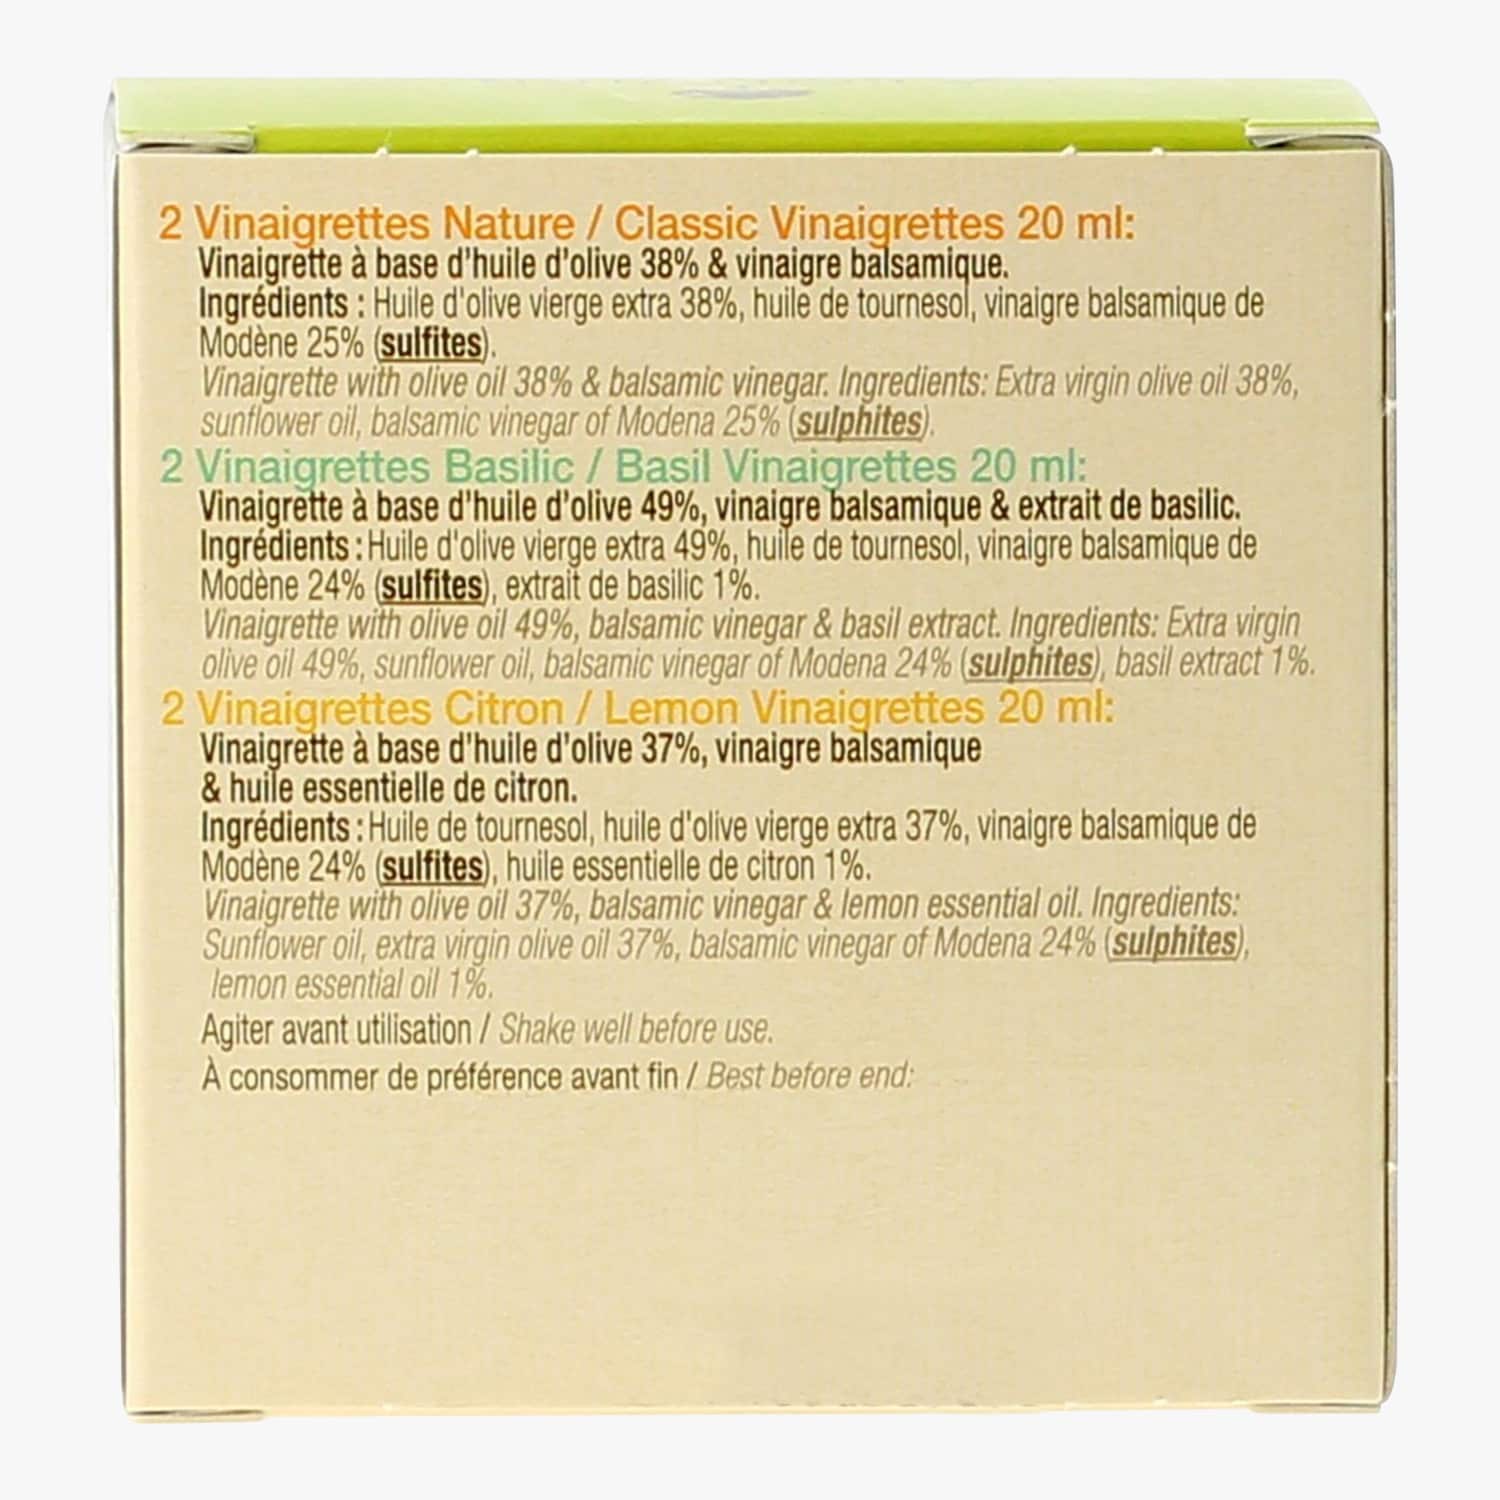 2 Vinaigrettes Nature / Classic Vinaigrettes 20 ml:
Vinaigrette à base d'huile d'olive 38% & vinaigre balsamique.
Ingrédients : Huile d'olive vierge extra 38%, huile de tournesol, vinaigre balsamique de
Modène 25% (sulfites).
Vinaigrette with olive oil 38% & balsamic vinegar. Ingredients: Extra virgin olive oil 38%,
sunflower oil, balsamic vinegar of Modena 25% (sulphites).
2 Vinaigrettes Basilic / Basil Vinaigrettes 20 ml:
Vinaigrette à base d'huile d'olive 49%, vinaigre balsamique & extrait de basilic.
Ingrédients : Huile d'olive vierge extra 49%, huile de tournesol, vinaigre balsamique de
Modène 24% (sulfites), extrait de basilic 1%.
Vinaigrette with olive oil 49%, balsamic vinegar & basil extract. Ingredients: Extra virgin
olive oil 49%, sunflower oil, balsamic vinegar of Modena 24% (sulphites), basil extract 1%.
2 Vinaigrettes Citron / Lemon Vinaigrettes 20 ml:
Vinaigrette à base d'huile d'olive 37%, vinaigre balsamique
& huile essentielle de citron.
Ingrédients : Huile de tournesol, huile d'olive vierge extra 37%, vinaigre balsamique de
Modène 24% (sulfites), huile essentielle de citron 1%.
Vinaigrette with olive oil 37%, balsamic vinegar & lemon essential oil. Ingredients:
Sunflower oil, extra virgin olive oil 37%, balsamic vinegar of Modena 24% (sulphites),
lemon essential oil 1%.
Agiter avant utilisation / Shake well before use.
À consommer de préférence avant fin / Best before end: